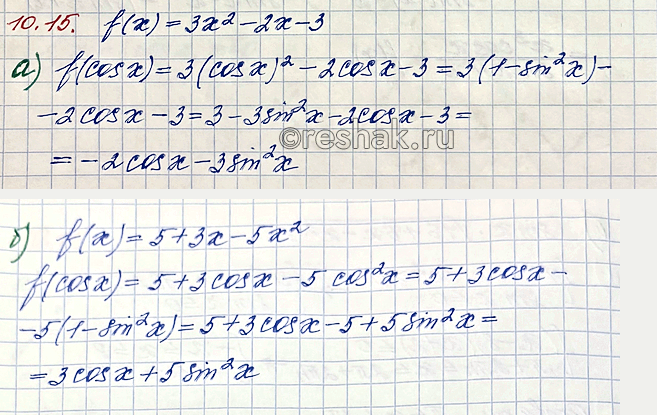 10.15. f(x) = 3x² - 2x - 3
а) f(cosx) = 3(cosx)² - 2cosx - 3 = 3(1 - sin²x) -
- 2cosx - 3 = 3 - 3sin²x - 2cosx - 3 =
©reshak.ru
= - 2cosx - 3sin²x
б) f(x) = 5 + 3x - 5x²
f(cosx) = 5 + 3cosx - 5 cos²x = 5 + 3cosx -
- 5(1 - sin²x) = 5 + 3cosx - 5 + 5sin²x =
= 3cosx + 5sin²x